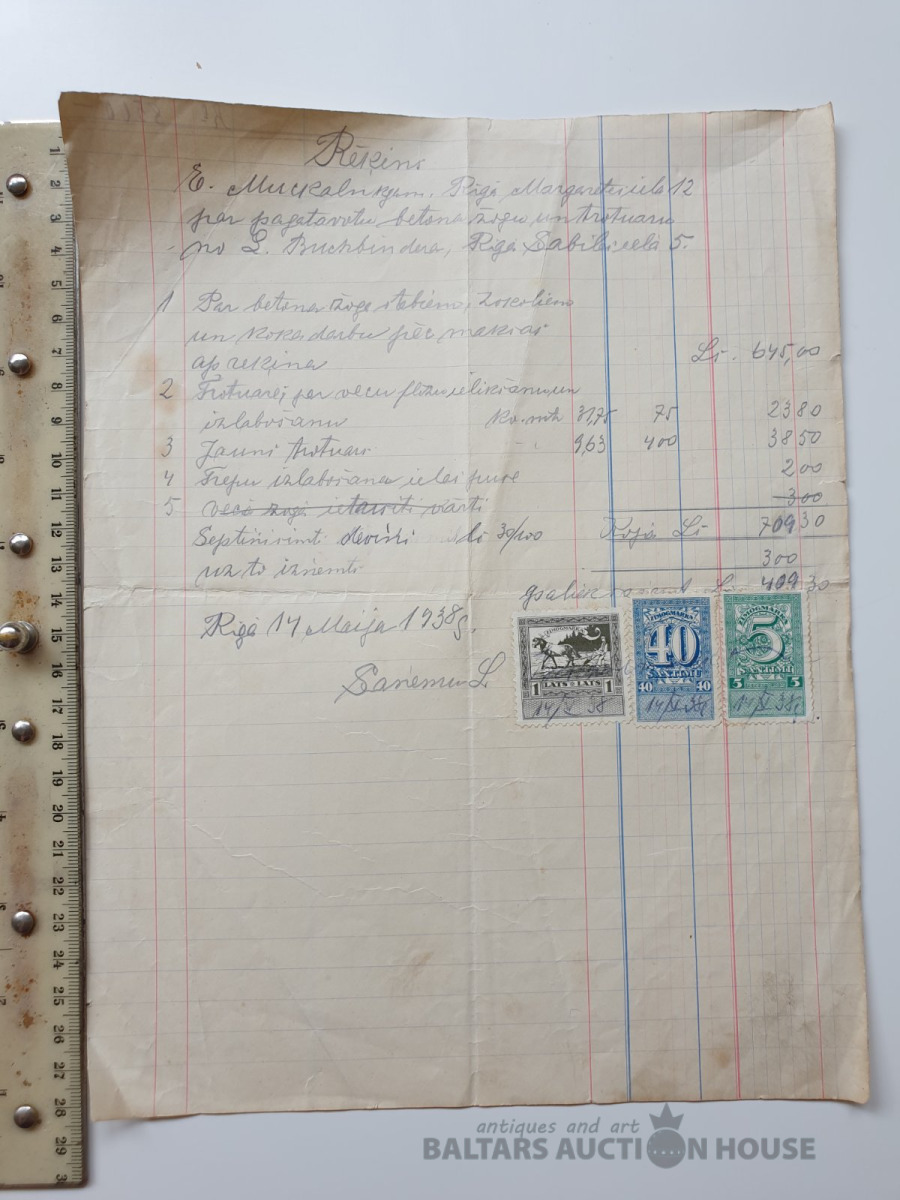 Rēķins
E. Muckalnkgam, Rīgā, Margaretas ielā 12
par pagatavotu betona žogu un trotuaru
no L. Buchbindera, Rīgā Sabiles ielā 5.
1 Par betona žoga stabiem, zokoliem
un koka darbu pēc maksas
aprēķina Ls. 645,00
2 Trotuarej par vecu flizu ielikšanu un
izlabošanu kv. mtr 31,75 75 2380
3 Jauns trotuars " " 9,63 400 3850
4 Trepu izlabošana ielas puse 200
5 vecā žogā ietaisīti vārti 300
Septiņsimti deviņi Ls 30/100 Kopā Ls 70930
uz to izņemti 300
paliek Ls. 409,30
Rīgā 14 Maijā 1938g.
Saņēmu L.
ZĪMOGMARKA
1 LATS LATS 1
14/V 38
ZĪMOGMARKA
40
SANTĪMI
40 40
14/V 38g
ZĪMOGMARKA
5
SANTĪMI
5 5
14/V 38g
1
2
3
4
5
6
7
8
9
10
11
12
13
14
15
16
17
18
19
20
21
22
23
24
25
26
27
28
29
antiques and art
BALTARS AUCTION HOUSE